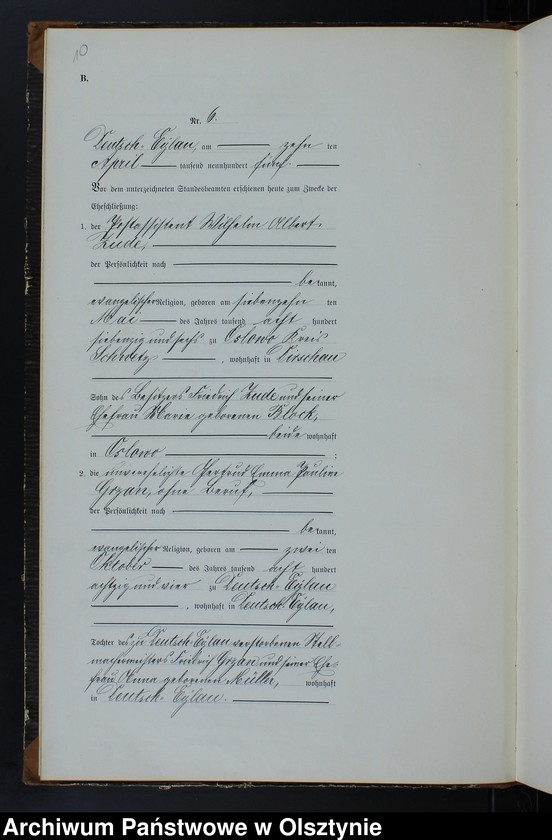 10
B.
Nr. 6.
Deutsch-Eylau, am zehn ten
April tausend neunhundert fünf.
Vor dem unterzeichneten Standesbeamten erschienen heute zum Zwecke der
Eheschließung:
1. der Postassistent Wilhelm Albert
Zude,
der Persönlichkeit nach
be kannt,
evangelischer Religion, geboren am siebenzehn ten
Mai des Jahres tausend acht hundert
siebenzig und sechs zu Oslowo Kreis
Schwetz, wohnhaft in Dirschau
Sohn des Besitzers Friedrich Zude und seiner
Ehefrau Marie geborenen Block,
beide wohnhaft
in Oslowo ;
2. die unverehelichte Gertrud Emma Pauline
Grzan, ohne Beruf,
der Persönlichkeit nach
be kannt,
evangelischer Religion, geboren am zwei ten
Oktober des Jahres tausend acht hundert
achtzig und vier zu Deutsch-Eylau
, wohnhaft in Deutsch-Eylau,
Tochter des zu Deutsch-Eylau verstorbenen Stell-
machermeisters Friedrich Grzan und seiner Ehe-
frau Anna geborenen Müller, wohnhaft
in Deutsch-Eylau.
Archiwum Państwowe w Olsztynie